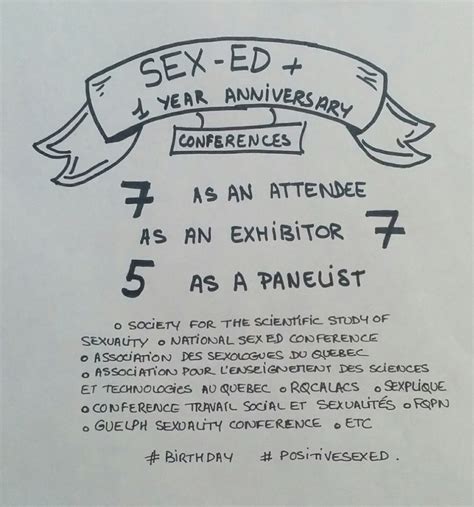 SEX-ED +
1 YEAR ANNIVERSARY
CONFERENCES
7 AS AN ATTENDEE
AS AN EXHIBITOR 7
5 AS A PANELIST
o SOCIETY FOR THE SCIENTIFIC STUDY OF
SEXUALITY o NATIONAL SEX ED CONFERENCE
o ASSOCIATION DES SEXOLOGUES DU QUEBEC
o ASSOCIATION POUR L'ENSEIGNEMENT DES SCIENCES
ET TECHNOLOGIES AU QUEBEC o RQCALACS o SEXPLIQUE
o CONFERENCE TRAVAIL SOCIAL ET SEXUALITÉS o FQPN
o GUELPH SEXUALITY CONFERENCE o ETC
# BIRTHDAY # POSITIVESEXED.